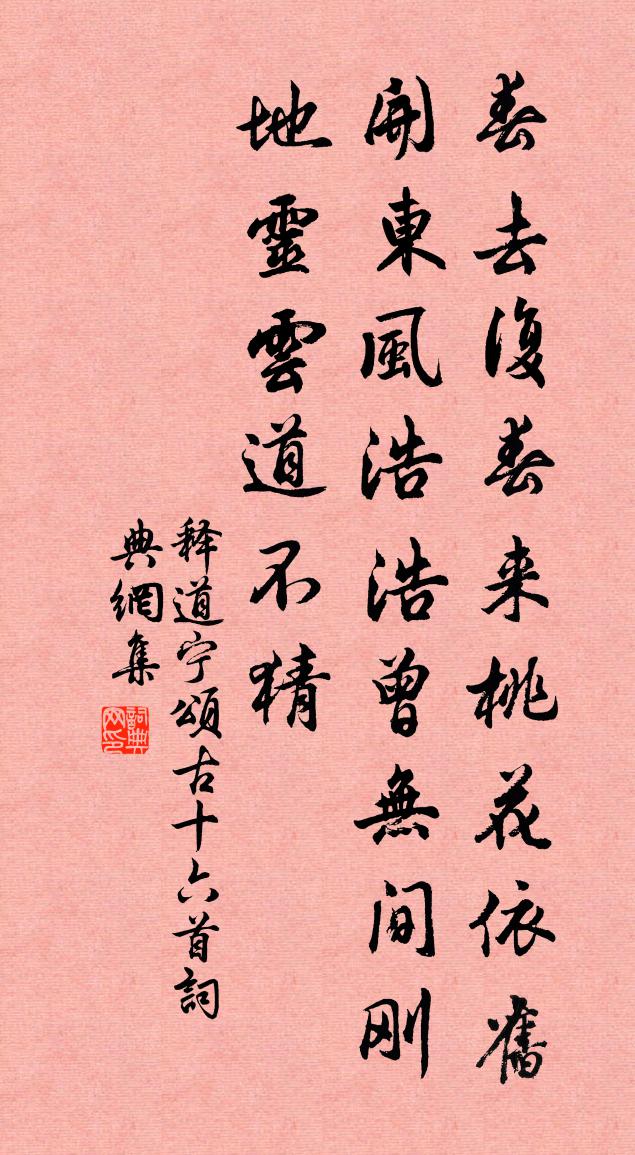 春去復春来桃花依舊
開東風浩浩曾無间刚
地靈雲道不猜
释道宁頌古十六首詞
典網集
詞典網印